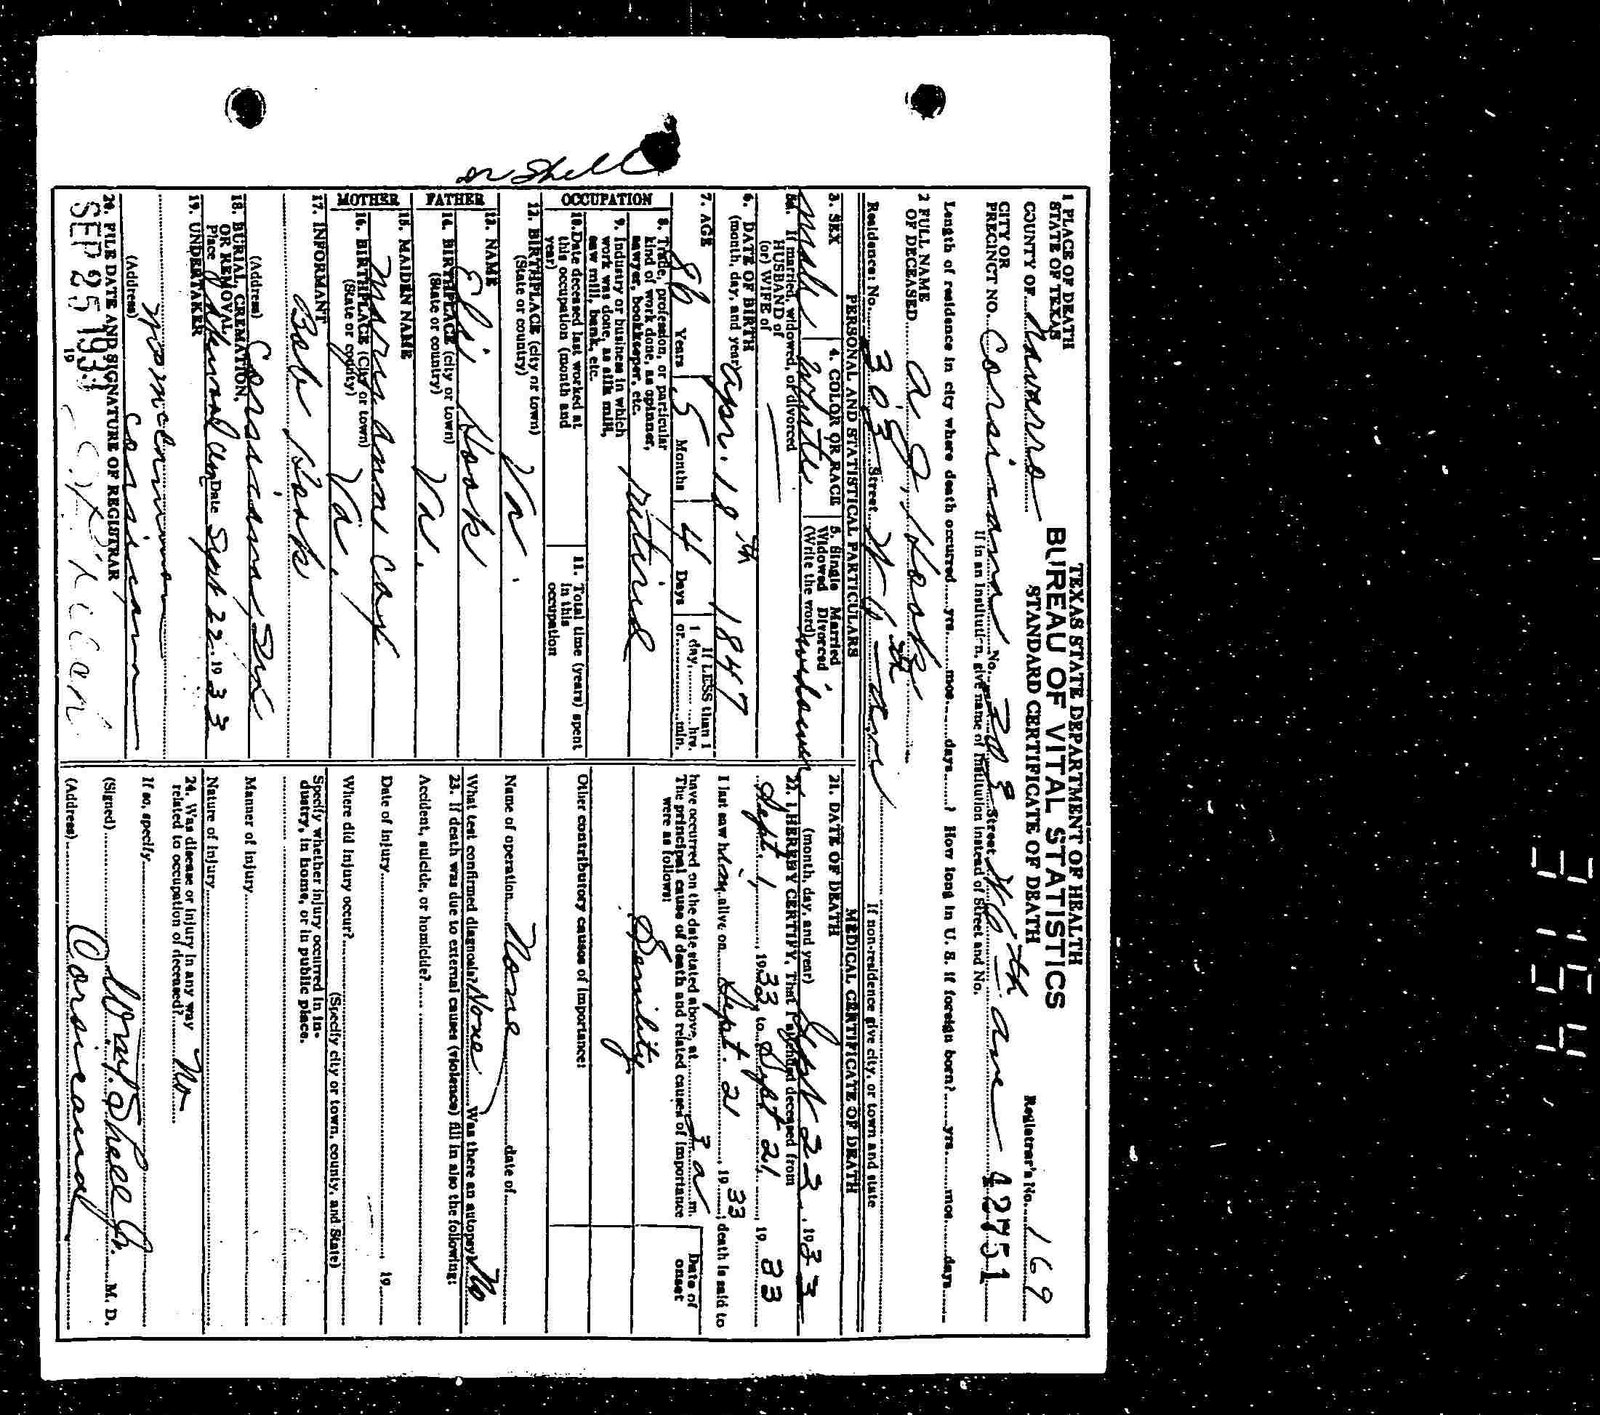 Dr Shell
TEXAS STATE DEPARTMENT OF HEALTH
BUREAU OF VITAL STATISTICS
STANDARD CERTIFICATE OF DEATH
1 PLACE OF DEATH
STATE OF TEXAS
COUNTY OF Navarro
Registrar's No. 169
CITY OR
PRECINCT NO. Corsicana No. 303 Street W 6th ave 42751
If in an institution, give name of institution instead of Street and No.
Length of residence in city where death occurred yrs. mos. days ? How long in U. S. if foreign born? yrs. mos. days
2 FULL NAME
OF DECEASED A J Hook
Residence: No. 303 Street W 6th ave If non-residence give city, or town and state
PERSONAL AND STATISTICAL PARTICULARS
3. SEX
male
4. COLOR OR RACE
white
5. Single Married
Widowed Divorced
(Write the word) widower
5a. If married, widowed, or divorced
HUSBAND of
(or) WIFE of
6. DATE OF BIRTH
(month, day, and year) Apr. 18th 1847
7. AGE
86 Years 5 Months 4 Days
If LESS than 1
1 day, hrs.
or min.
OCCUPATION
8. Trade, profession, or particular
kind of work done, as spinner,
sawyer, bookkeeper, etc. retired
9. Industry or business in which
work was done, as silk mill,
saw mill, bank, etc.
10. Date deceased last worked at
this occupation (month and
year)
11. Total time (years) spent
in this
occupation
12. BIRTHPLACE (city or town)
(State or country) Va.
FATHER
13. NAME
Eli Hook
14. BIRTHPLACE (city or town)
(State or country) Va.
MOTHER
15. MAIDEN NAME
Mary Ann Cox
16. BIRTHPLACE (City or town)
(State or country) Va.
17. INFORMANT
Bob Hook
(Address) Corsicana, Tex
18. BURIAL, CREMATION,
OR REMOVAL
Place Date Sept 22 1933
19. UNDERTAKER
(Address) Corsicana
20. FILE DATE AND SIGNATURE OF REGISTRAR
SEP 25 193 19
MEDICAL CERTIFICATE OF DEATH
21. DATE OF DEATH
(month, day, and year) Sept 22, 1933
22. I HEREBY CERTIFY, That I attended deceased from
Sept. 1, 1933 to Sept 21, 1933
I last saw him alive on Sept. 21, 1933, death is said to
have occurred on the date stated above, at 3 a m.
The principal cause of death and related causes of importance
were as follows:
Date of
onset
Senility
Other contributory causes of importance:
Name of operation None date of
What test confirmed diagnosis? None Was there an autopsy? No
23. If death was due to external causes (violence) fill in also the following:
Accident, suicide, or homicide?
Date of injury 19
Where did injury occur?
(Specify city or town, county, and State)
Specify whether injury occurred in in-
dustry, in home, or in public place.
Manner of injury
Nature of injury
24. Was disease or injury in any way
related to occupation of deceased? No
If so, specify
(Signed) Wm. T. Shell Jr. M. D.
(Address) Corsicana